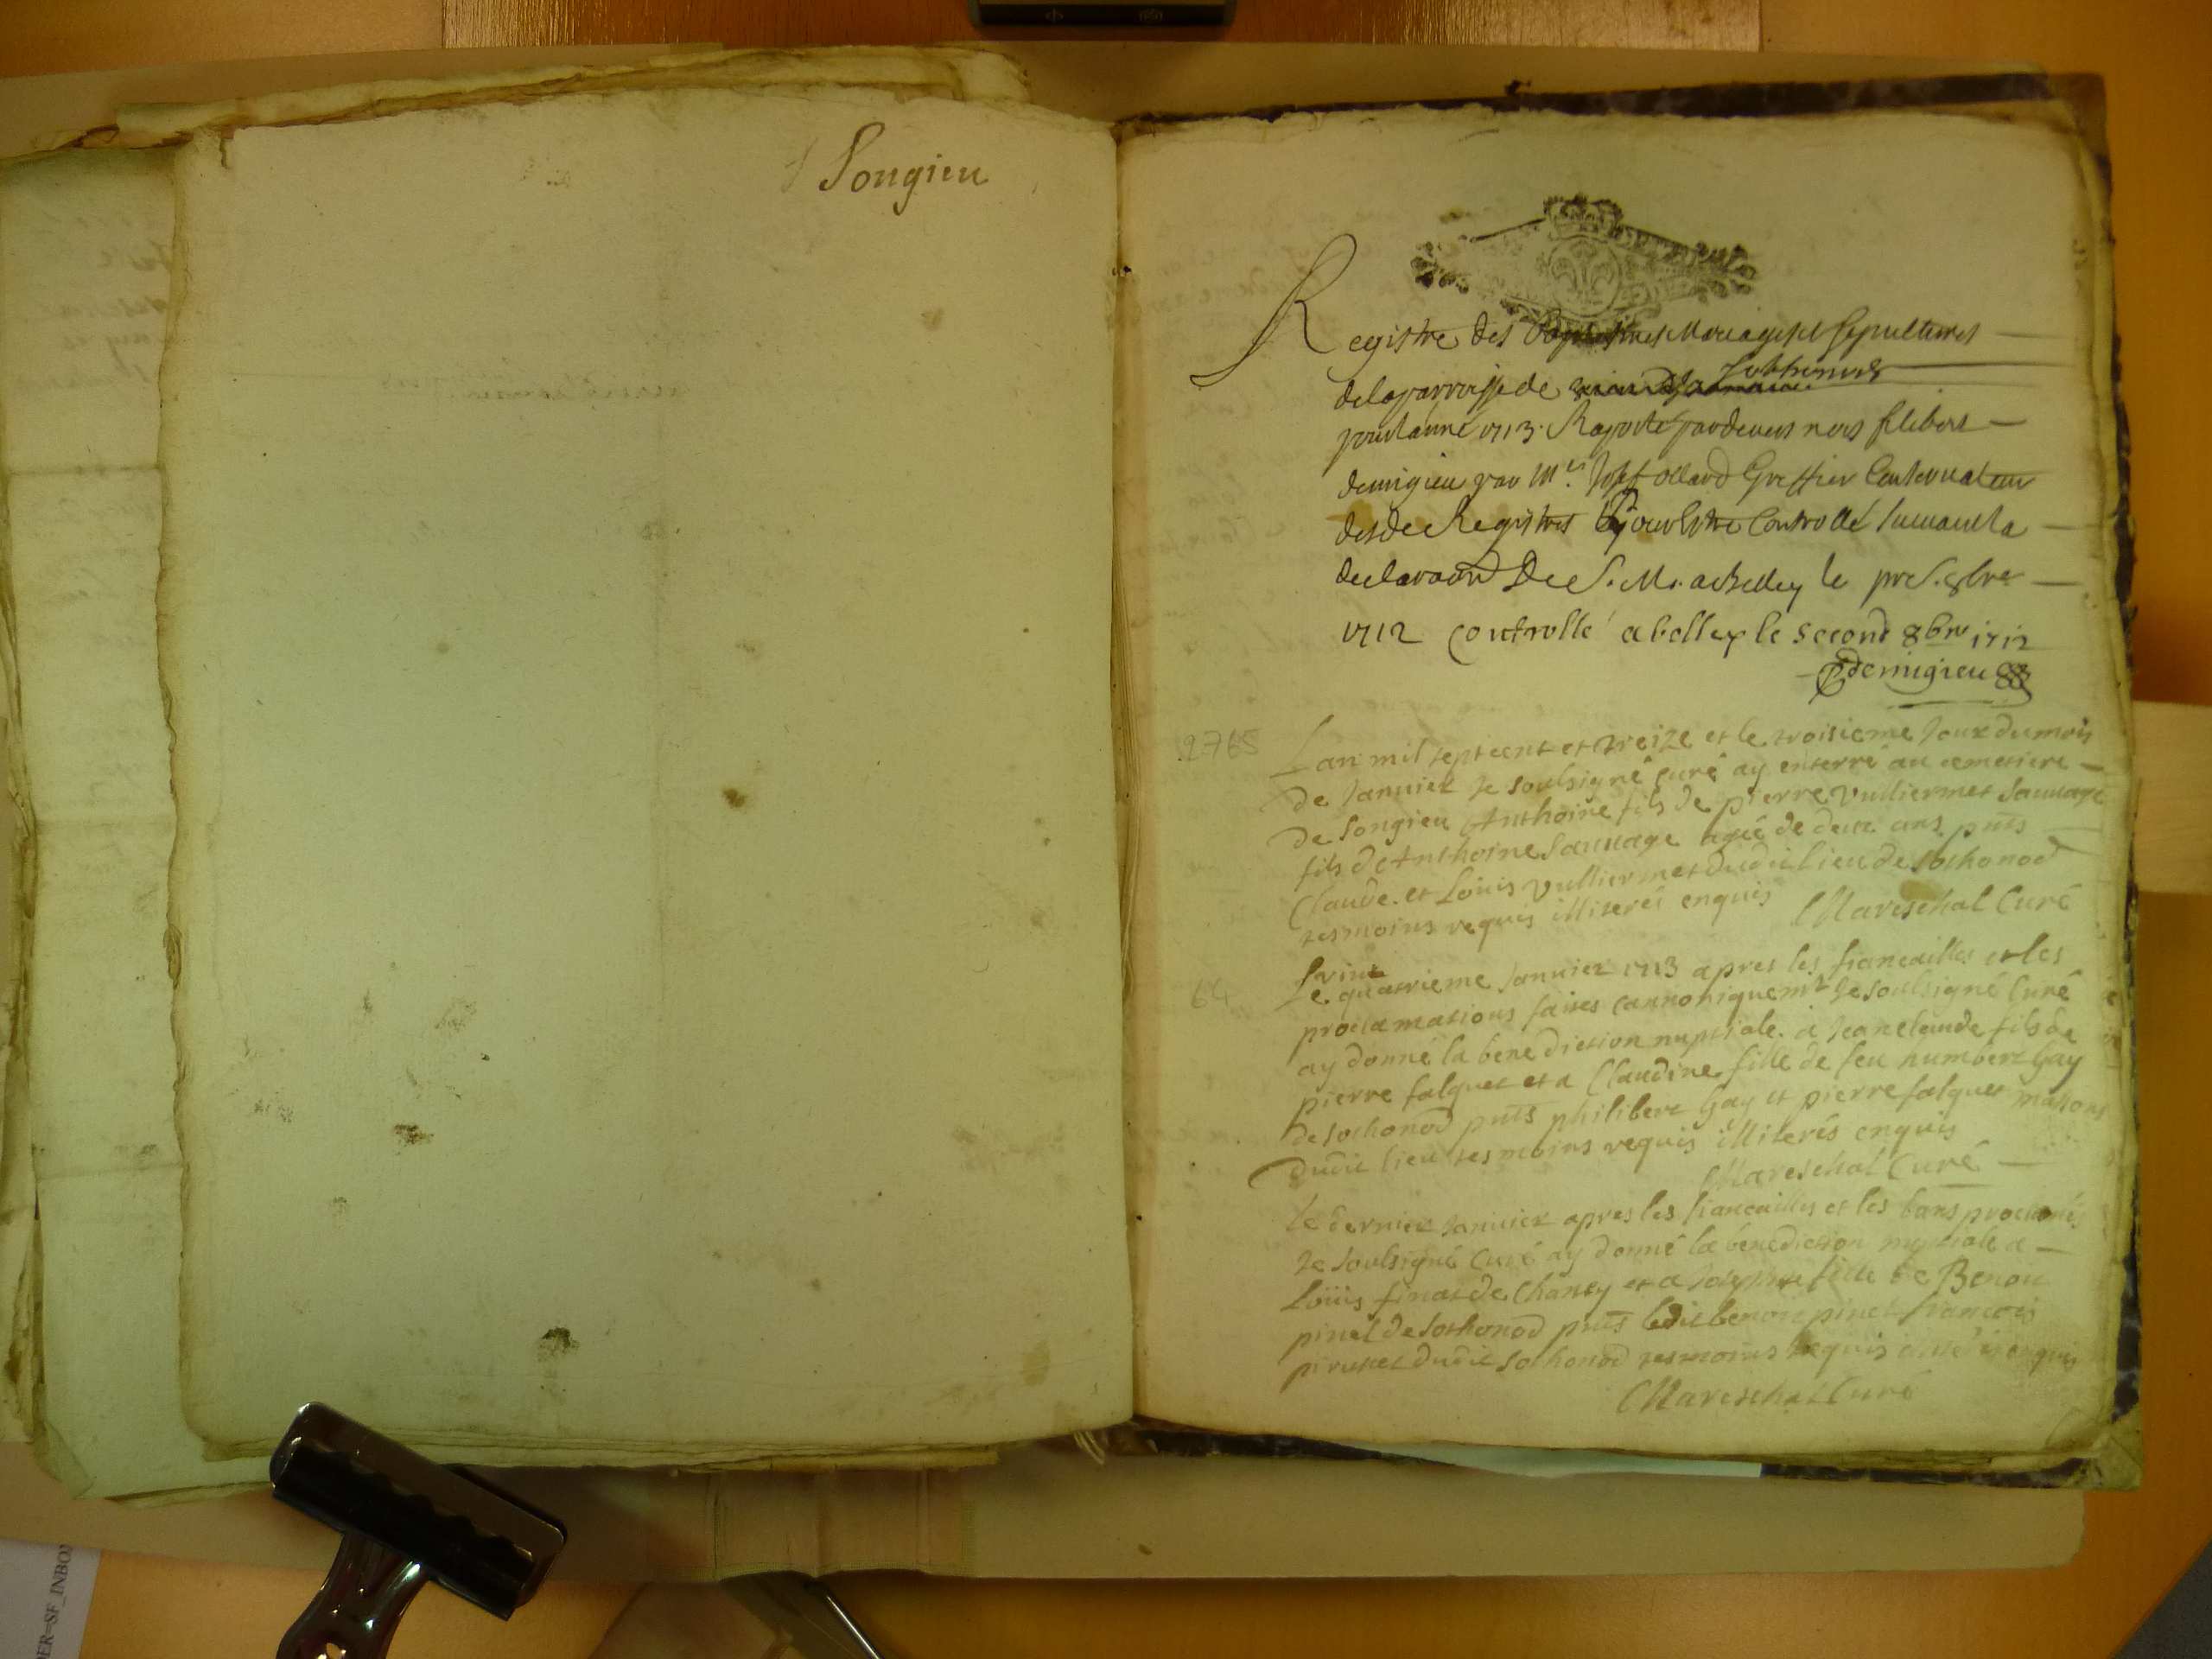 Songieu
Registre des Baptesmes Mariages et Sepultures
de la parroisse de Sothonod
pour l'année 1713. Raporté pardevers nous filibert
demigieu par Mre Josept ollard Greffier Conservateur
desde Registres pour Estre Controllé suivant la
declaraon De S. M. a Belley le pre. 8bre
1712 Controllé a belley le second 8bre 1712
P demigieu
2765
Lan mil sept cent et treize et le troisieme Jour du mois
de Janvier Je soulsigné curé ay enterré au cemetiere
de Songieu Anthoine fils de pierre vulliermet Sauvage
fils de Anthoine Sauvage agé de deux ans pnts
Claude et Loüis vulliermet dudit lieu de Sothonod
tesmoins requis illiterés enquis Mareschal Curé
64
vint
Le quatrieme Janvier 1713 apres les fiancailles et les
proclamations faites cannoniquemt Je soulsigné Curé
ay donné la benediction nuptiale a Jeanclaude fils de
pierre falquet et a Claudine fille de feu humbert Gay
de Sothonod pnts philibert Gay et pierre falquet masons
dudit lieu tesmoins requis illiterés enquis
Mareschal Curé
le dernier Janvier apres les fiancailles et les bans proclamés
Je soulsigné Curé ay donné la benediction nuptiale a
Loüis finat de Charcy et a Josephte fille de Benoit
pinet de Sothonod pnts ledit benoit pinet francois
dudit Sothonod tesmoins requis enquis
Mareschal Curé